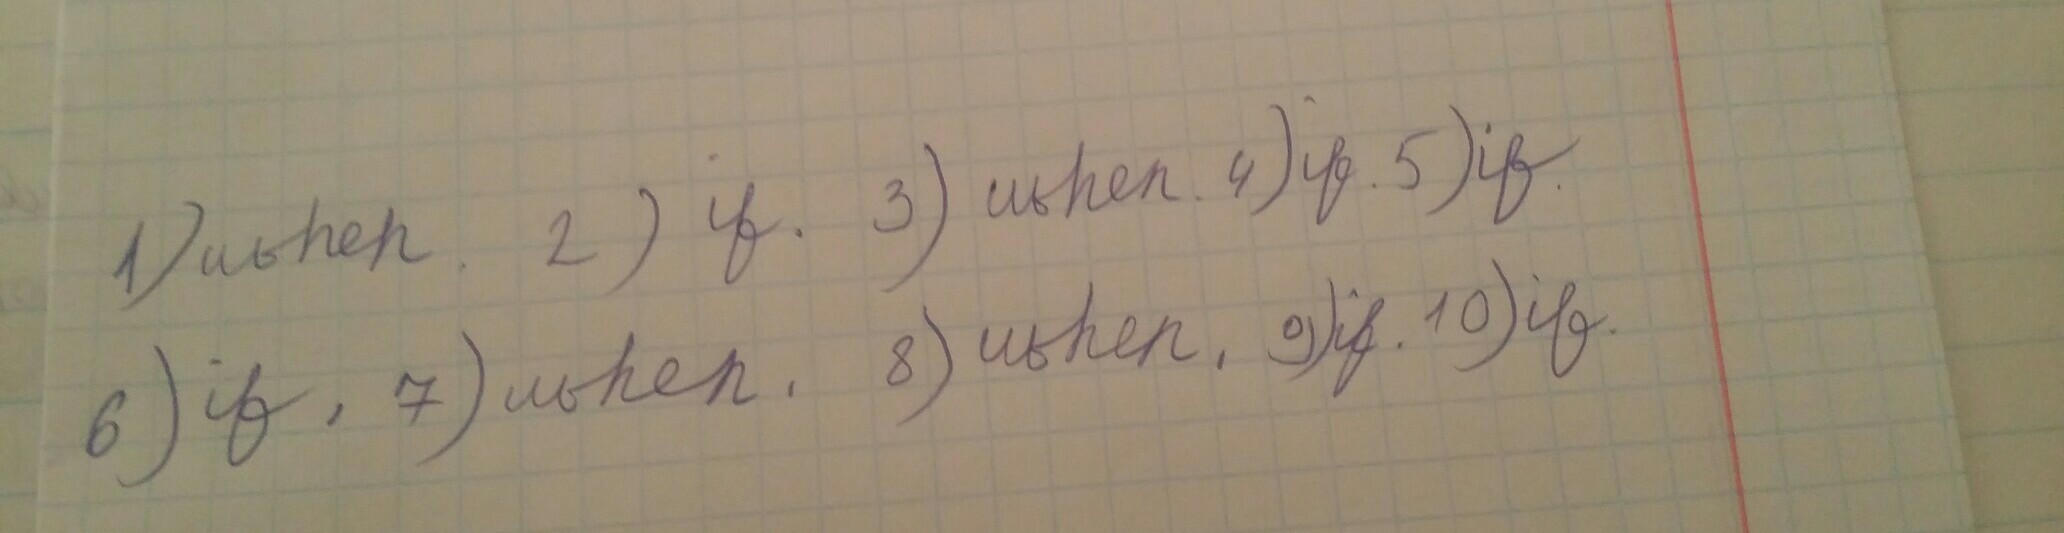 1) when. 2) if. 3) when. 4) if. 5) if.
6) if, 7) when. 8) when, 9) if. 10) if.